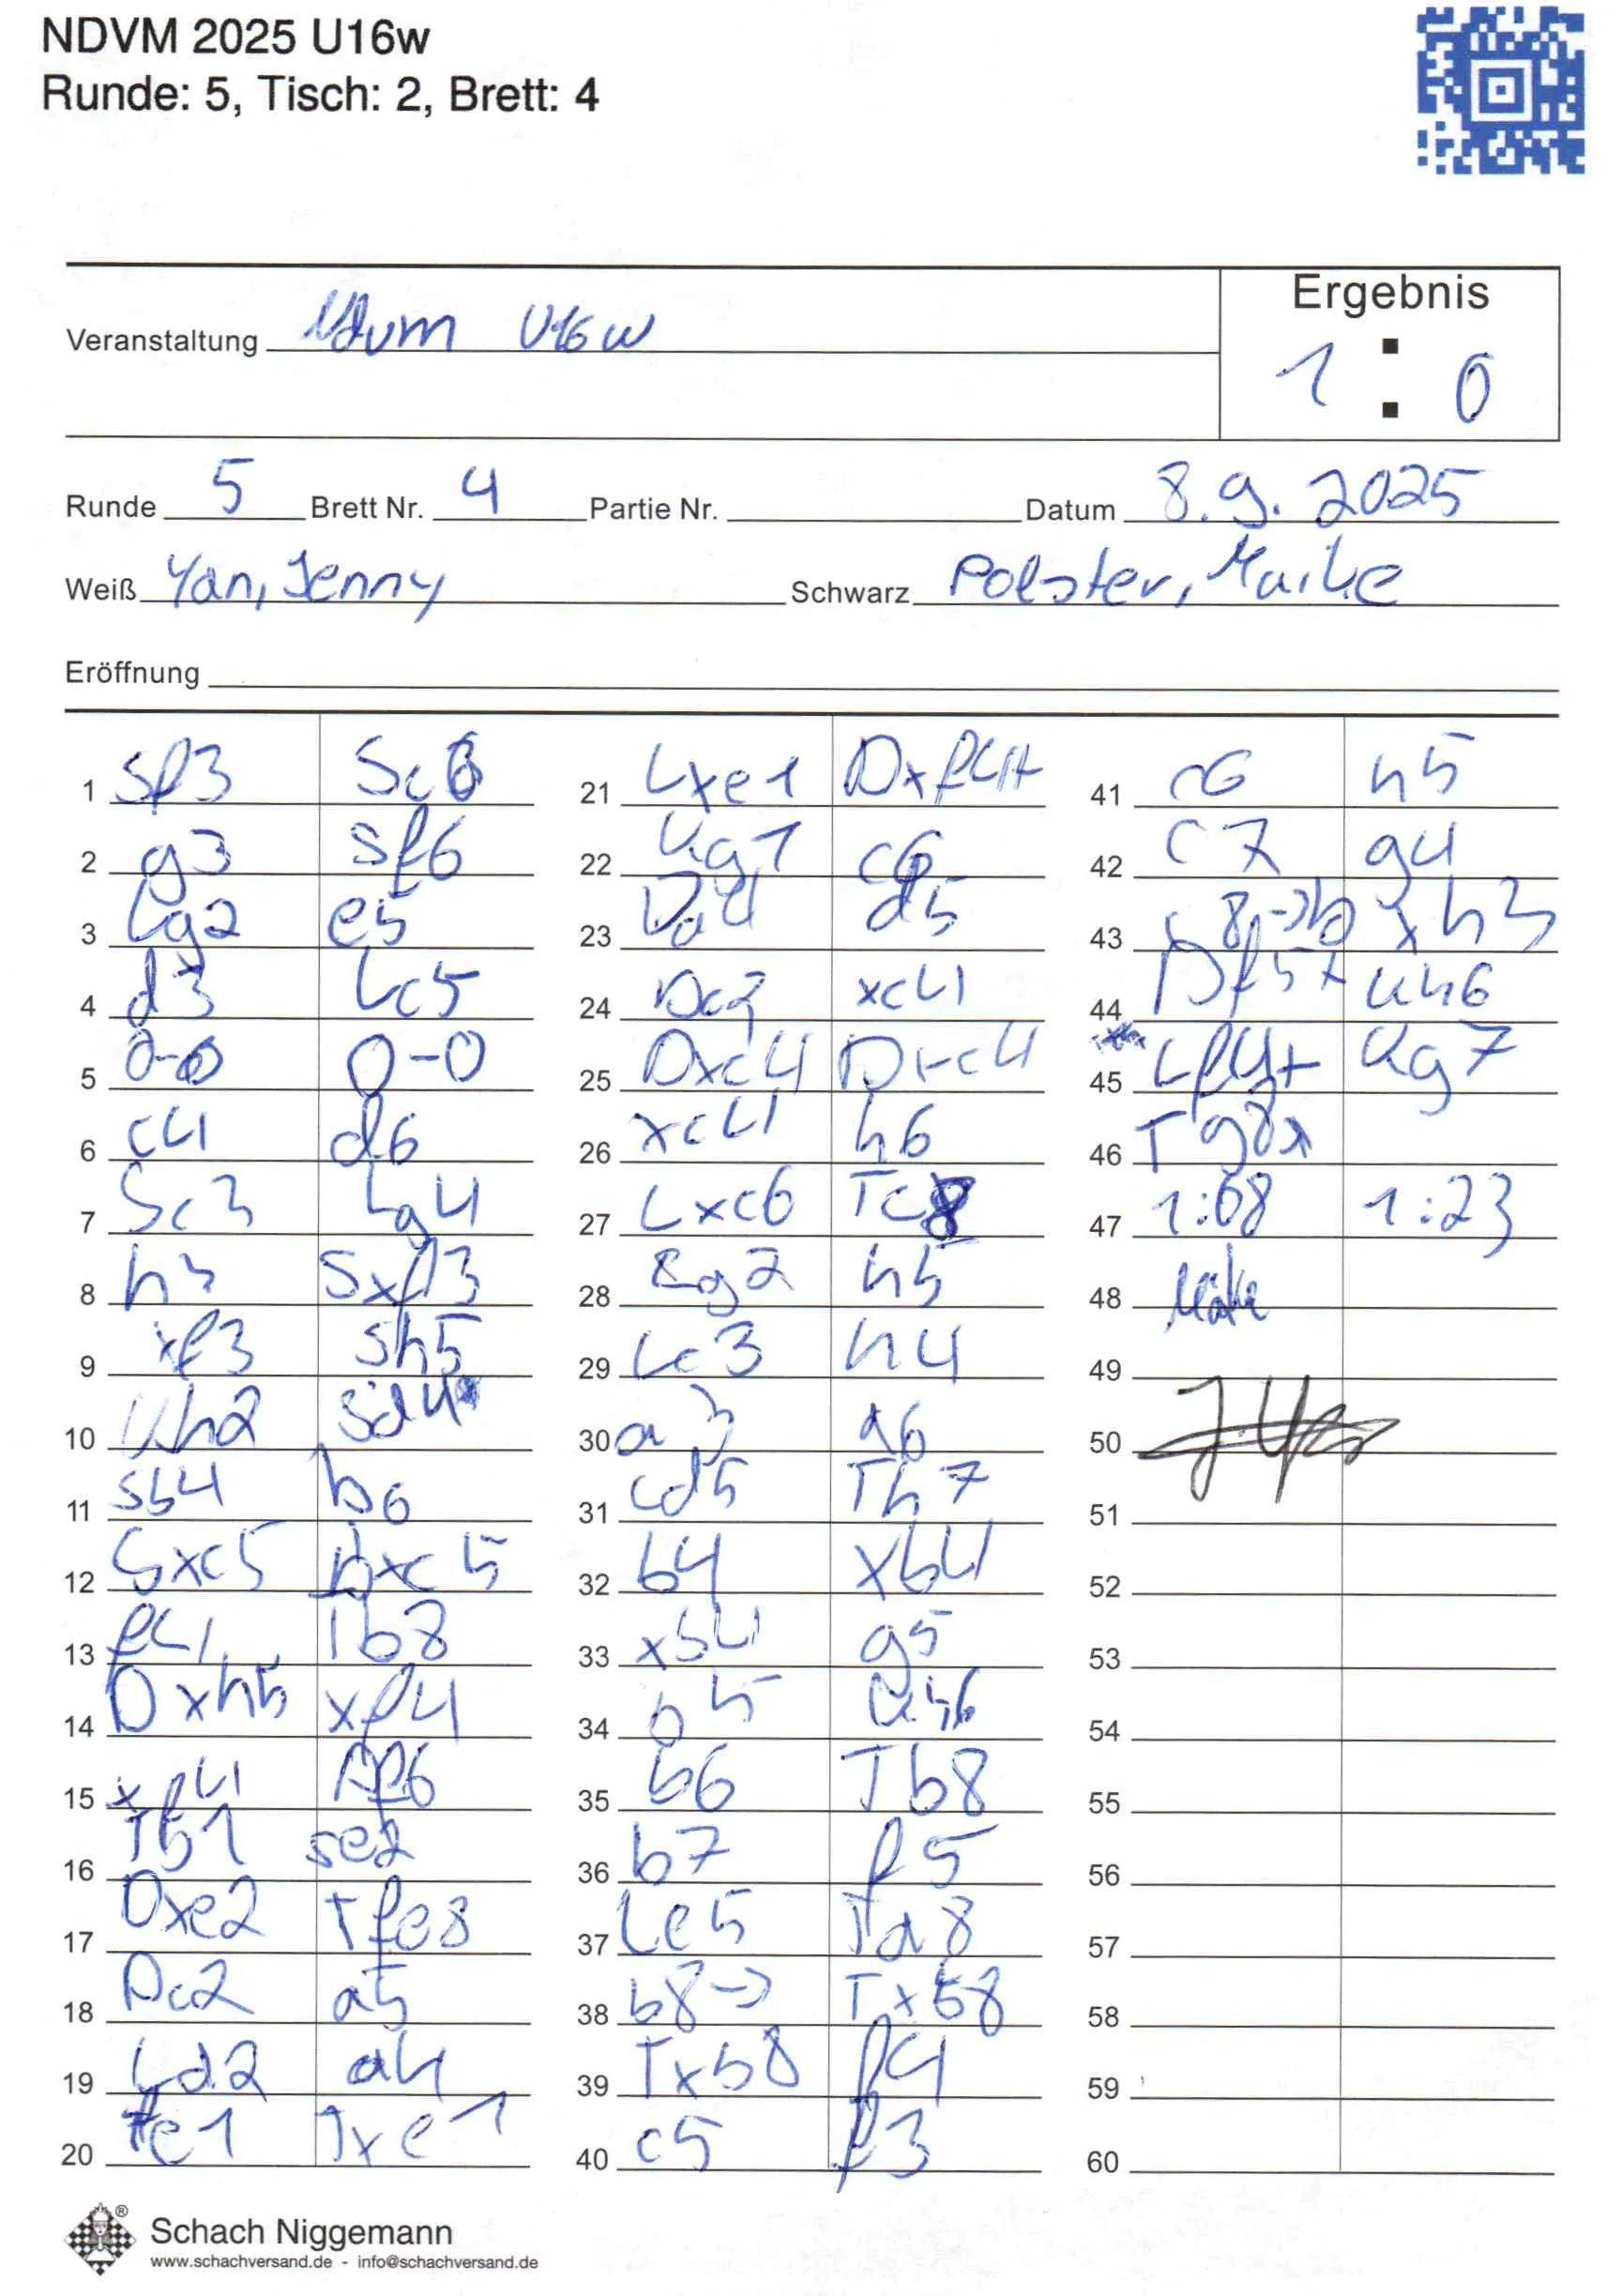 NDVM 2025 U16w
Runde: 5, Tisch: 2, Brett: 4
Ergebnis
Veranstaltung Ndvm U16w
1 : 0
Runde 5 Brett Nr. 4 Partie Nr. Datum 8.9.2025
Weiß Yan, Jenny Schwarz Polster, Maike
Eröffnung
1 Sf3 Sc6
2 g3 Sf6
3 Lg2 e5
4 d3 Lc5
5 0-0 0-0
6 c4 d6
7 Sc3 Lg4
8 h3 Sxf3
9 xf3 Sh5
10 Kh2 Sd4
11 Sb4 b6
12 Sxc5 bxc5
13 f4 Tb8
14 Dxh5 xf4
15 xf4 Df6
16 Tb1 Se2
17 Dxe2 Tfe8
18 Dc2 a5
19 Ld2 a4
20 Te1 Txe1
21 Lxe1 Dxf4+
22 Kg1 c6
23 Da4 d5
24 Dc2 xc4
25 Dxc4 Dxc4
26 xc4 h6
27 Lxc6 Tc8
28 Kg2 h5
29 Lc3 h4
30 a3 g6
31 Ld5 Th7
32 b4 xb4
33 xb4 g5
34 b5 Kh6
35 b6 Tb8
36 b7 f5
37 Le5 Ta8
38 b8-> Txb8
39 Txb8 f4
40 c5 f3
41 c6 h5
42 c7 g4
43 c8->D xh3
44 Df5+ Kh6
45 Lf4+ Kg7
46 Tg8x
47 1:08 1:23
48
49
50
51
52
53
54
55
56
57
58
59
60
Schach Niggemann
www.schachversand.de - info@schachversand.de